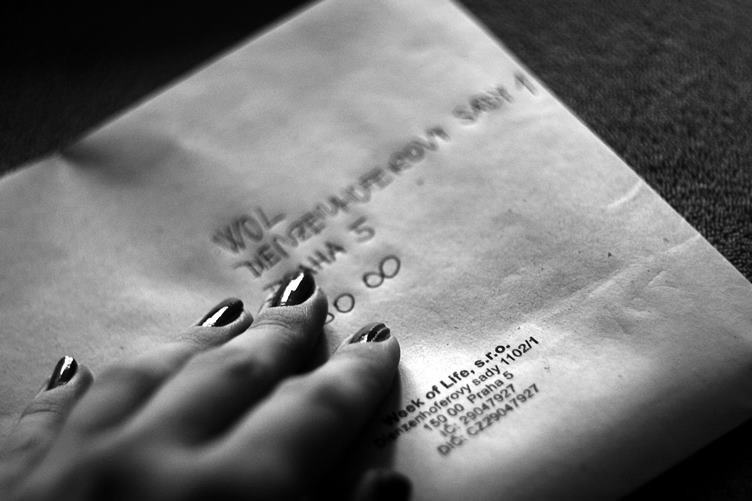 WOL
DIENZENHOFEROVY SADY 1
PRAHA 5
00 00
Week of Life, s.r.o.
Dienzenhoferovy sady 1102/1
150 00 Praha 5
IČ: 29047927
DIČ: CZ29047927